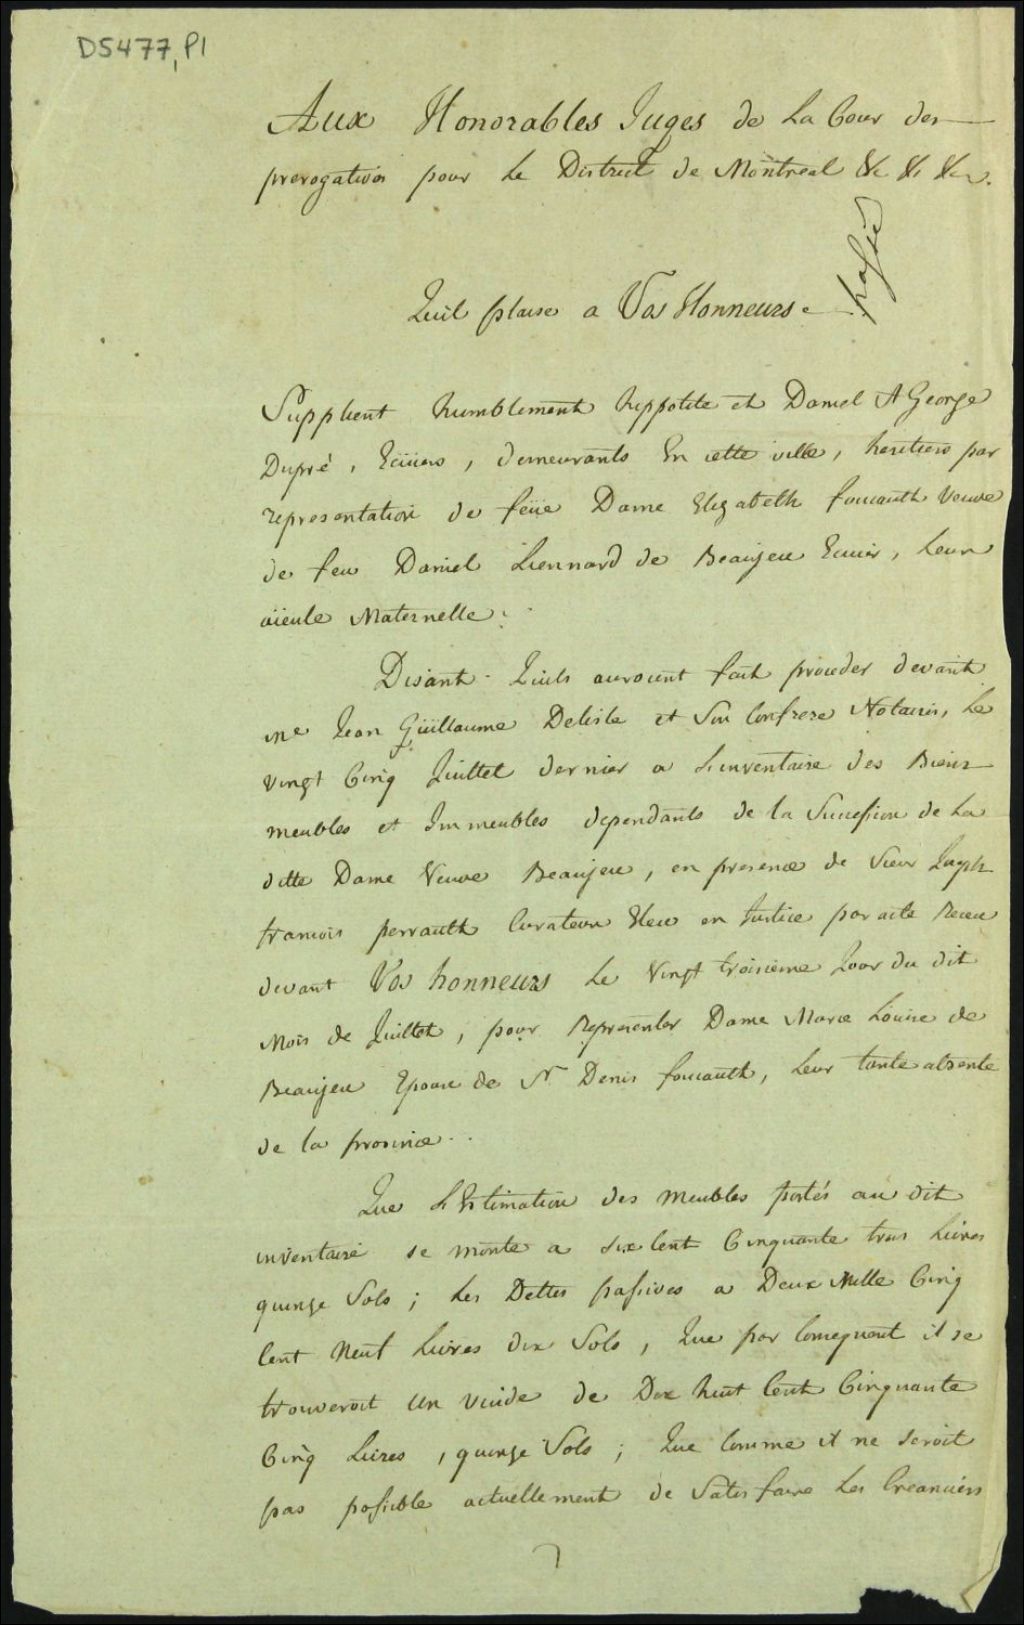 D5477, P1
Aux Honorables Juges de La Cour des
prerogatives pour Le District de Montreal &c &c &c.
passé
Quil plaise a Vos Honneurs.
Supplient humblement hyppolite et Daniel A George
Dupré, Ecüiers, demeurants En cette ville, heritiers par
representation de feüe Dame Elizabeth foucault Veuve
de feu Daniel Liennard de Beaujeu Ecuier, Leur
aïeule Maternelle.
Disant Quils auroient fait proceder devant
me Jean Güillaume Delisle et Son Confrere Notaires, Le
vingt Cinq Juillet dernier a L'inventaire des Biens
meubles et Immeubles dependants de la Succession de La
ditte Dame Veuve Beaujeu, en presence de Sieur Joseph
francois perrault Curateur Eleu en Justice par acte Receu
devant Vos honneurs Le Vingt troisieme Jour du dit
Mois de Juillet, pour Representer Dame Marie Louise de
Beaujeu Epouse de Sr Denis foucault, Leur tante absente
de la province.
Que L'Estimation des meubles portés au dit
inventaire se monte a six Cent Cinquante trois Livres
quinze Sols; Les Dettes passives a Deux Mille Cinq
Cent Neuf Livres dix Sols, Que par Consequent il se
trouveroit un vuide de Dix huit Cent Cinquante
Cinq Livres, quinze Sols; Que Comme il ne seroit
pas possible actuellement de Satisfaire Les Creanciers